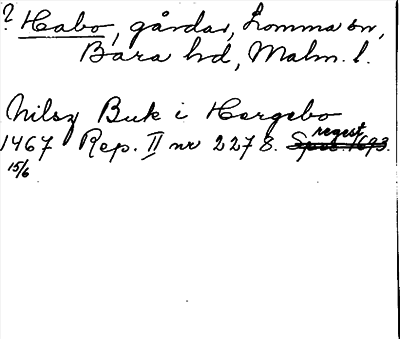 ? Habo, gårdar, Lomma sn,
Bara hd, Malm. l.
Nilsz Buk i Hargebo
1467 Rep. II nr 2278. regest.
15/6